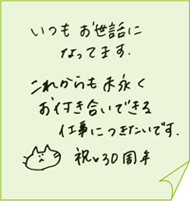 いつもお世話に
なってます.
これからも末永く
お付き合いできる
仕事につきたいです.
祝♥30周年